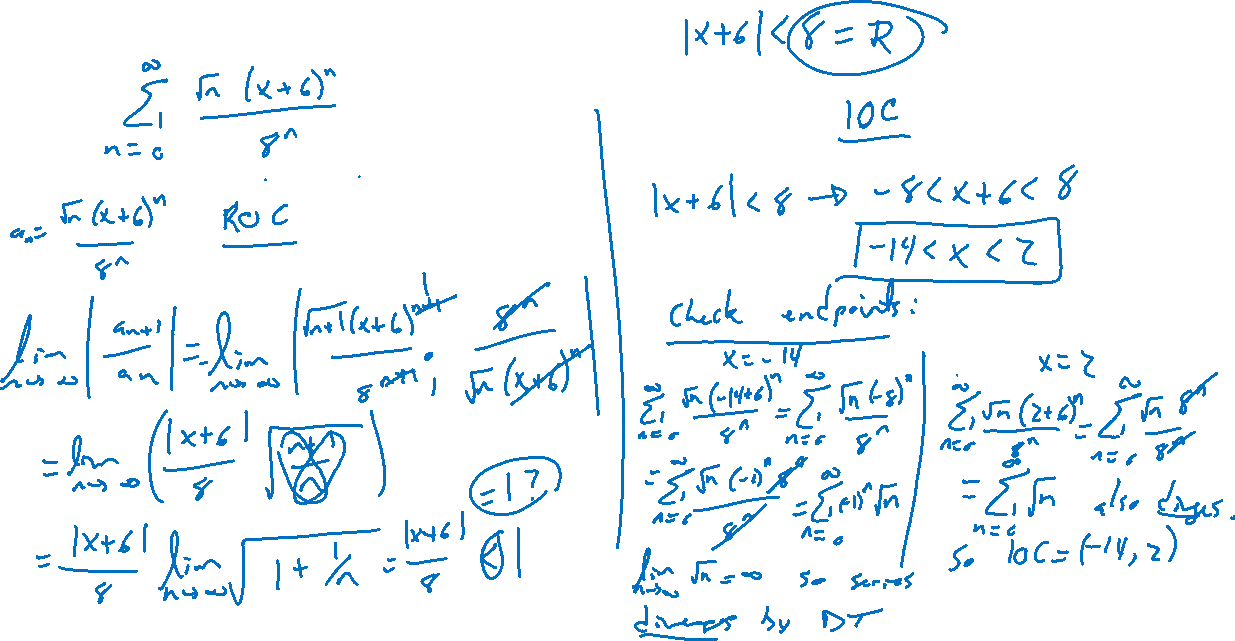 ∞
∑ √n (x+6)ⁿ / 8ⁿ
n=0
aₙ = √n (x+6)ⁿ / 8ⁿ ROC
lim |aₙ₊₁ / aₙ| = lim |√n+1 (x+6)ⁿ⁺¹ / 8ⁿ⁺¹ · 8ⁿ / √n (x+6)ⁿ|
n→∞ n→∞
= lim (|x+6| / 8 √(n+1 / n))
n→∞
= 1?
= |x+6| / 8 lim √(1 + 1/n) = |x+6| / 8 < 1
n→∞
|x+6| < 8 = R
IOC
|x+6| < 8 → -8 < x+6 < 8
-14 < x < 2
Check endpoints:
x = -14
∞ ∞
∑ √n (-14+6)ⁿ / 8ⁿ = ∑ √n (-8)ⁿ / 8ⁿ
n=0 n=0
∞ ∞
= ∑ √n (-1)ⁿ 8ⁿ / 8ⁿ = ∑ (-1)ⁿ √n
n=0 n=0
lim √n = ∞ so series
n→∞
diverges by DT
x = 2
∞ ∞
∑ √n (2+6)ⁿ / 8ⁿ = ∑ √n 8ⁿ / 8ⁿ
n=0 n=0
∞
= ∑ √n also diverges.
n=0
so IOC = (-14, 2)